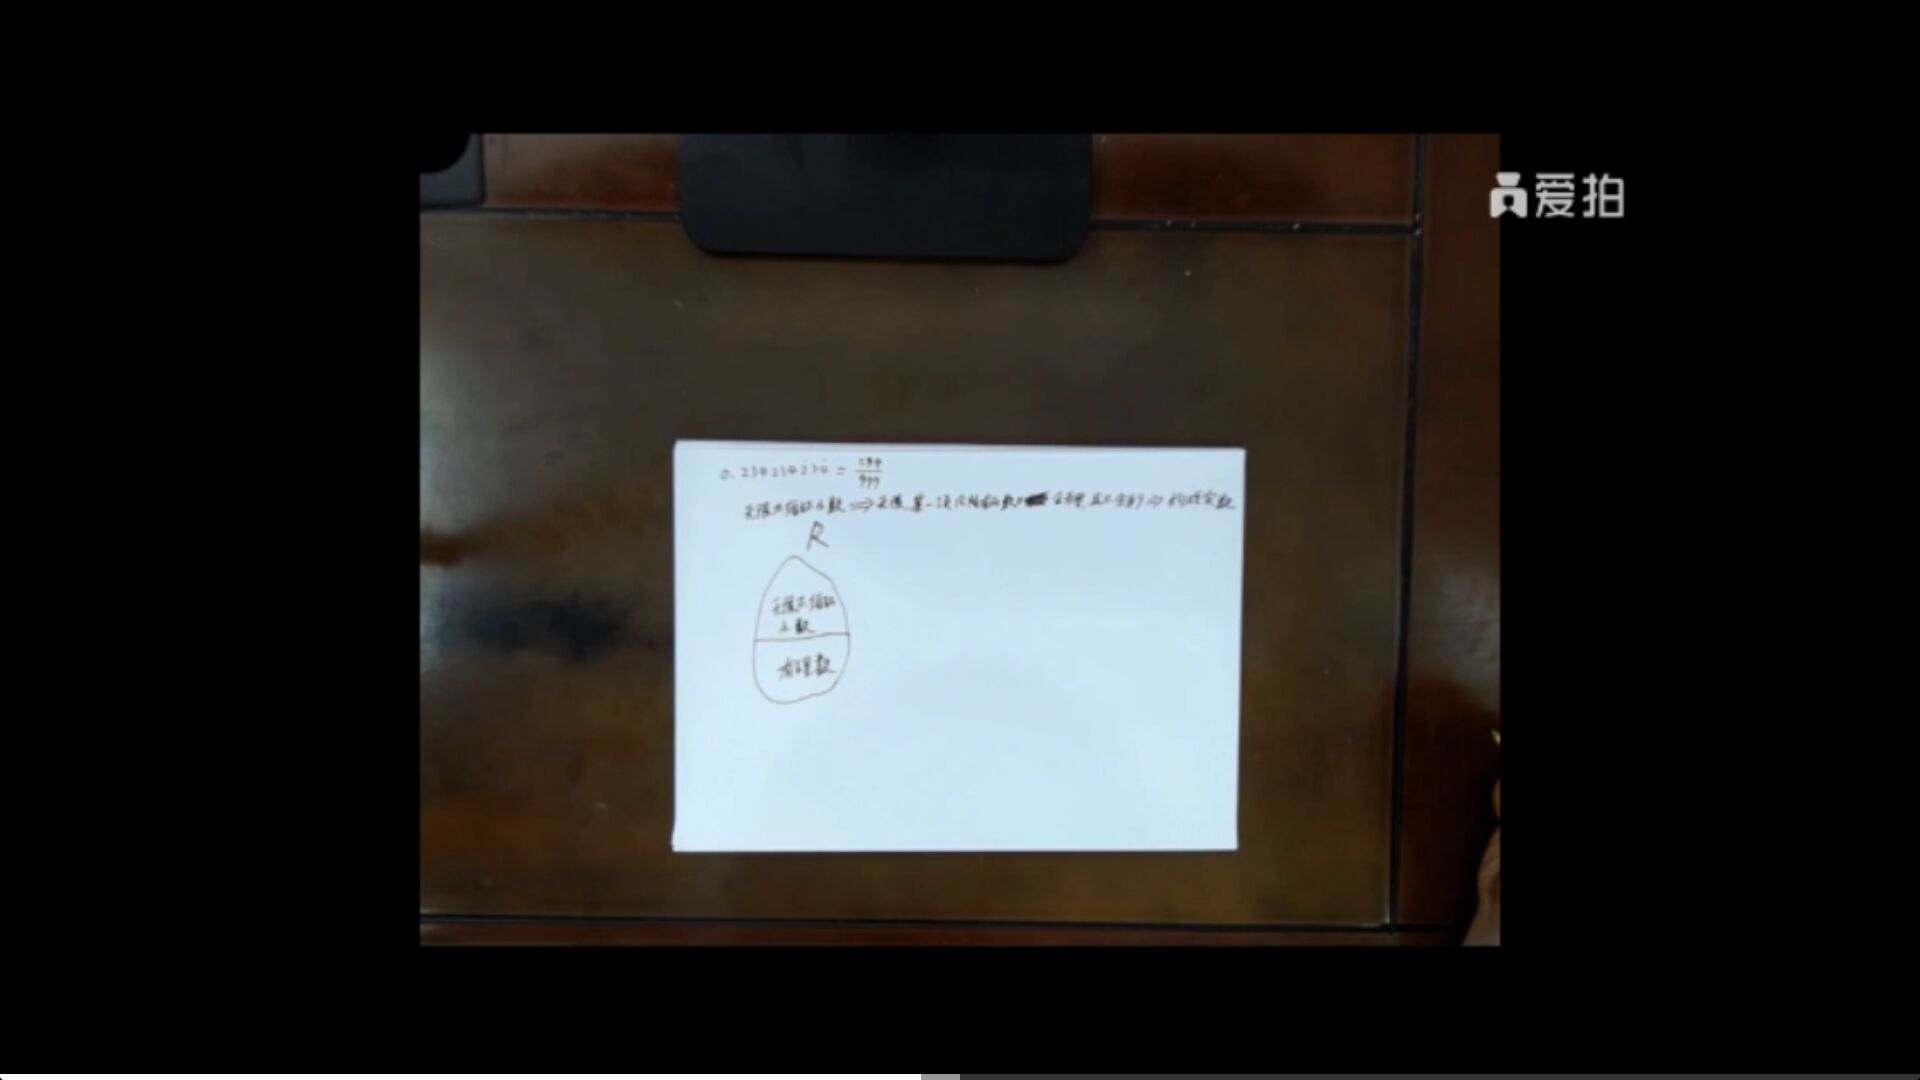 爱拍
0.234234234 = 234/999
无限不循环小数 ⇒ 无限,某一次 ⇒ 构成实数
R
无限不循环
小数
有理数